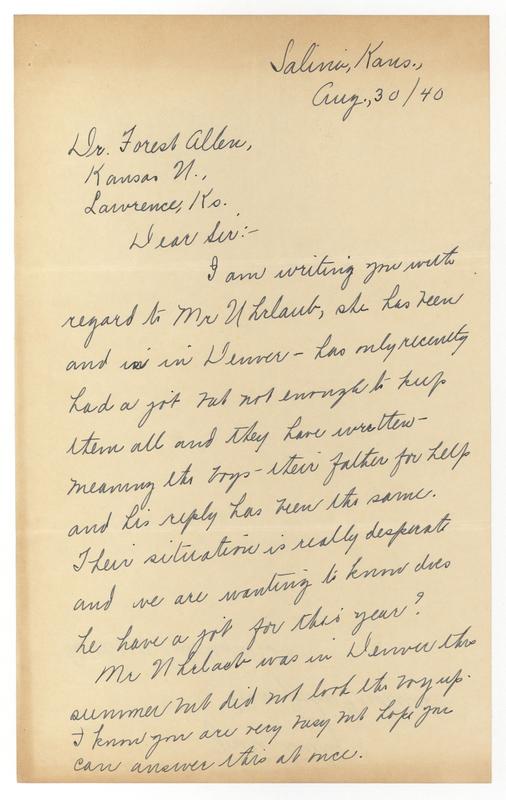 Salina, Kans.,
Aug., 30/40
Dr. Forest Allen,
Kansas U.,
Lawrence, Ks.
Dear Sir:-
I am writing you with
regard to Mr Uhrlaub, she has been
and is in Denver - has only recently
had a job but not enough to keep
them all and they have written -
meaning the boys - their father for help
and his reply has been the same.
Their situation is really desperate
and we are wanting to know does
he have a job for this year?
Mr Uhrlaub was in Denver this
summer but did not look the boy up.
I know you are very busy but hope you
can answer this at once.